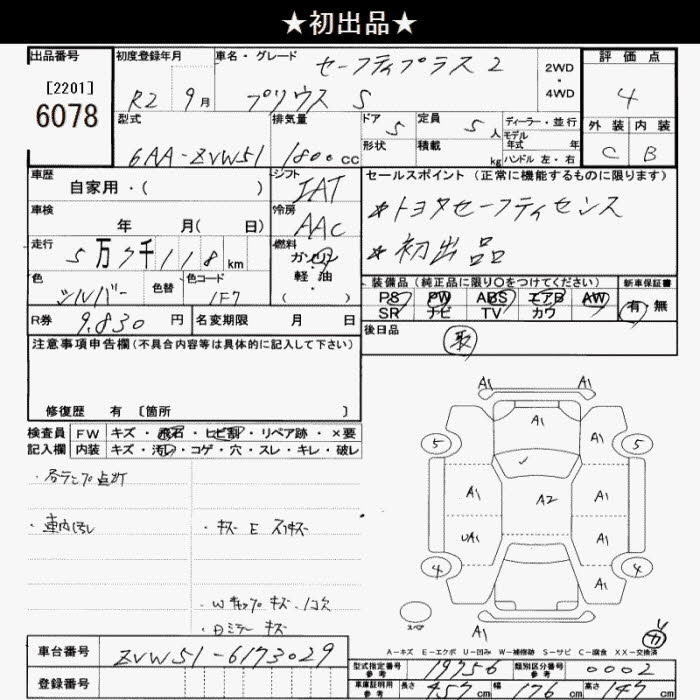 ★初出品★
出品番号
[2201]
6078
初度登録年月
R2 9月
車名・グレード
セーフティプラス2
プリウス S
2WD
・
4WD
評価点
4
外装 内装
C B
型式
6AA-ZVW51
排気量
1800cc
ドア 5
形状
定員 5人
積載 kg
ディーラー・並行
モデル
年式 年
ハンドル 左・右
車歴
自家用・( )
シフト
IAT
車検
年 月( 日)
冷房
AAC
走行
5万7千118km
燃料
ガソリン
軽油
( )
色
シルバー
色替
色コード
1F7
セールスポイント (正常に機能するものに限ります)
*トヨタセーフティセンス
*初出品
装備品(純正品に限り〇をつけてください)
PS PW ABS エアB AW
SR ナビ TV カワ
新車保証書
有・無
R券 9.830円
名変期限 月 日
後日品
取
注意事項申告欄(不具合内容等は具体的に記入して下さい)
修復歴 有 [箇所 ]
検査員
記入欄
FW キズ・飛石・ヒビ割・リペア跡・×要
内装 キズ・汚れ・コゲ・穴・スレ・キレ・破レ
・各ランプ点灯
・車内汚れ
・キズ E スリキズ
・Wキャップキズ、1コ欠
・Dミラーキズ
A1 A1
A1
5 A1 5
A1 A2 A1
UA1 A1
4 A1 4
スペア
A1
A-キズ E-エクボ U-凹み W-補修跡 S-サビ C-腐食 XX-交換済
車台番号
ZVW51-6173029
登録番号
型式指定番号
参考
19756
類別区分番号
参考
0002
車庫証明用
参考
長さ 457cm
幅 176cm
高さ 147cm